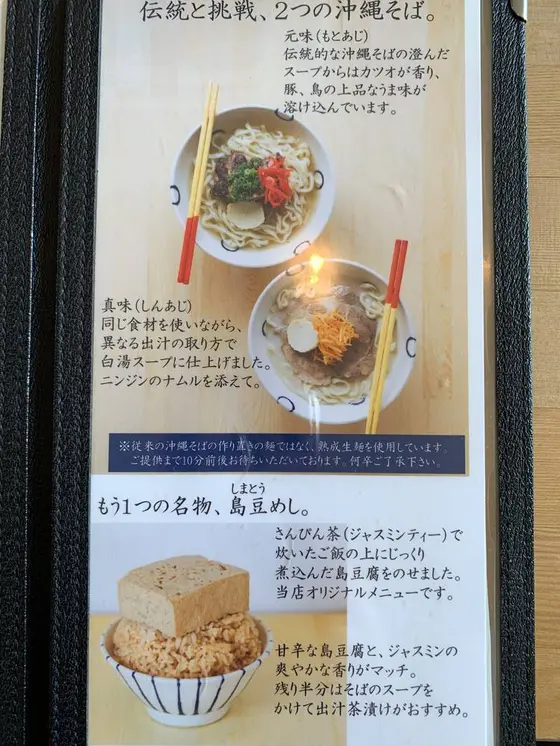 伝統と挑戦、2つの沖縄そば。
元味(もとあじ)
伝統的な沖縄そばの澄んだ
スープからはカツオが香り、
豚、鳥の上品なうま味が
溶け込んでいます。
真味(しんあじ)
同じ食材を使いながら、
異なる出汁の取り方で
白湯スープに仕上げました。
ニンジンのナムルを添えて。
※従来の沖縄そばの作り置きの麺ではなく、熟成生麺を使用しています。
ご提供まで10分前後お待ちいただいております。何卒ご了承下さい。
しまとう
もう1つの名物、島豆めし。
さんぴん茶(ジャスミンティー)で
炊いたご飯の上にじっくり
煮込んだ島豆腐をのせました。
当店オリジナルメニューです。
甘辛な島豆腐と、ジャスミンの
爽やかな香りがマッチ。
残り半分はそばのスープを
かけて出汁茶漬けがおすすめ。